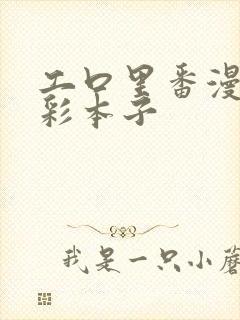 工口里番漫
彩本子
我是一只小蘑